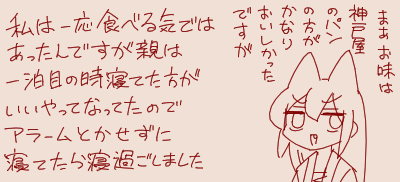 まぁお味は
神戸屋
のパン
の方が
かなり
おいしかった
ですが
私は一応食べる気では
あったんですが親は
一泊目の時寝てた方が
いいやってなってたので
アラームとかせずに
寝てたら寝過ごしました